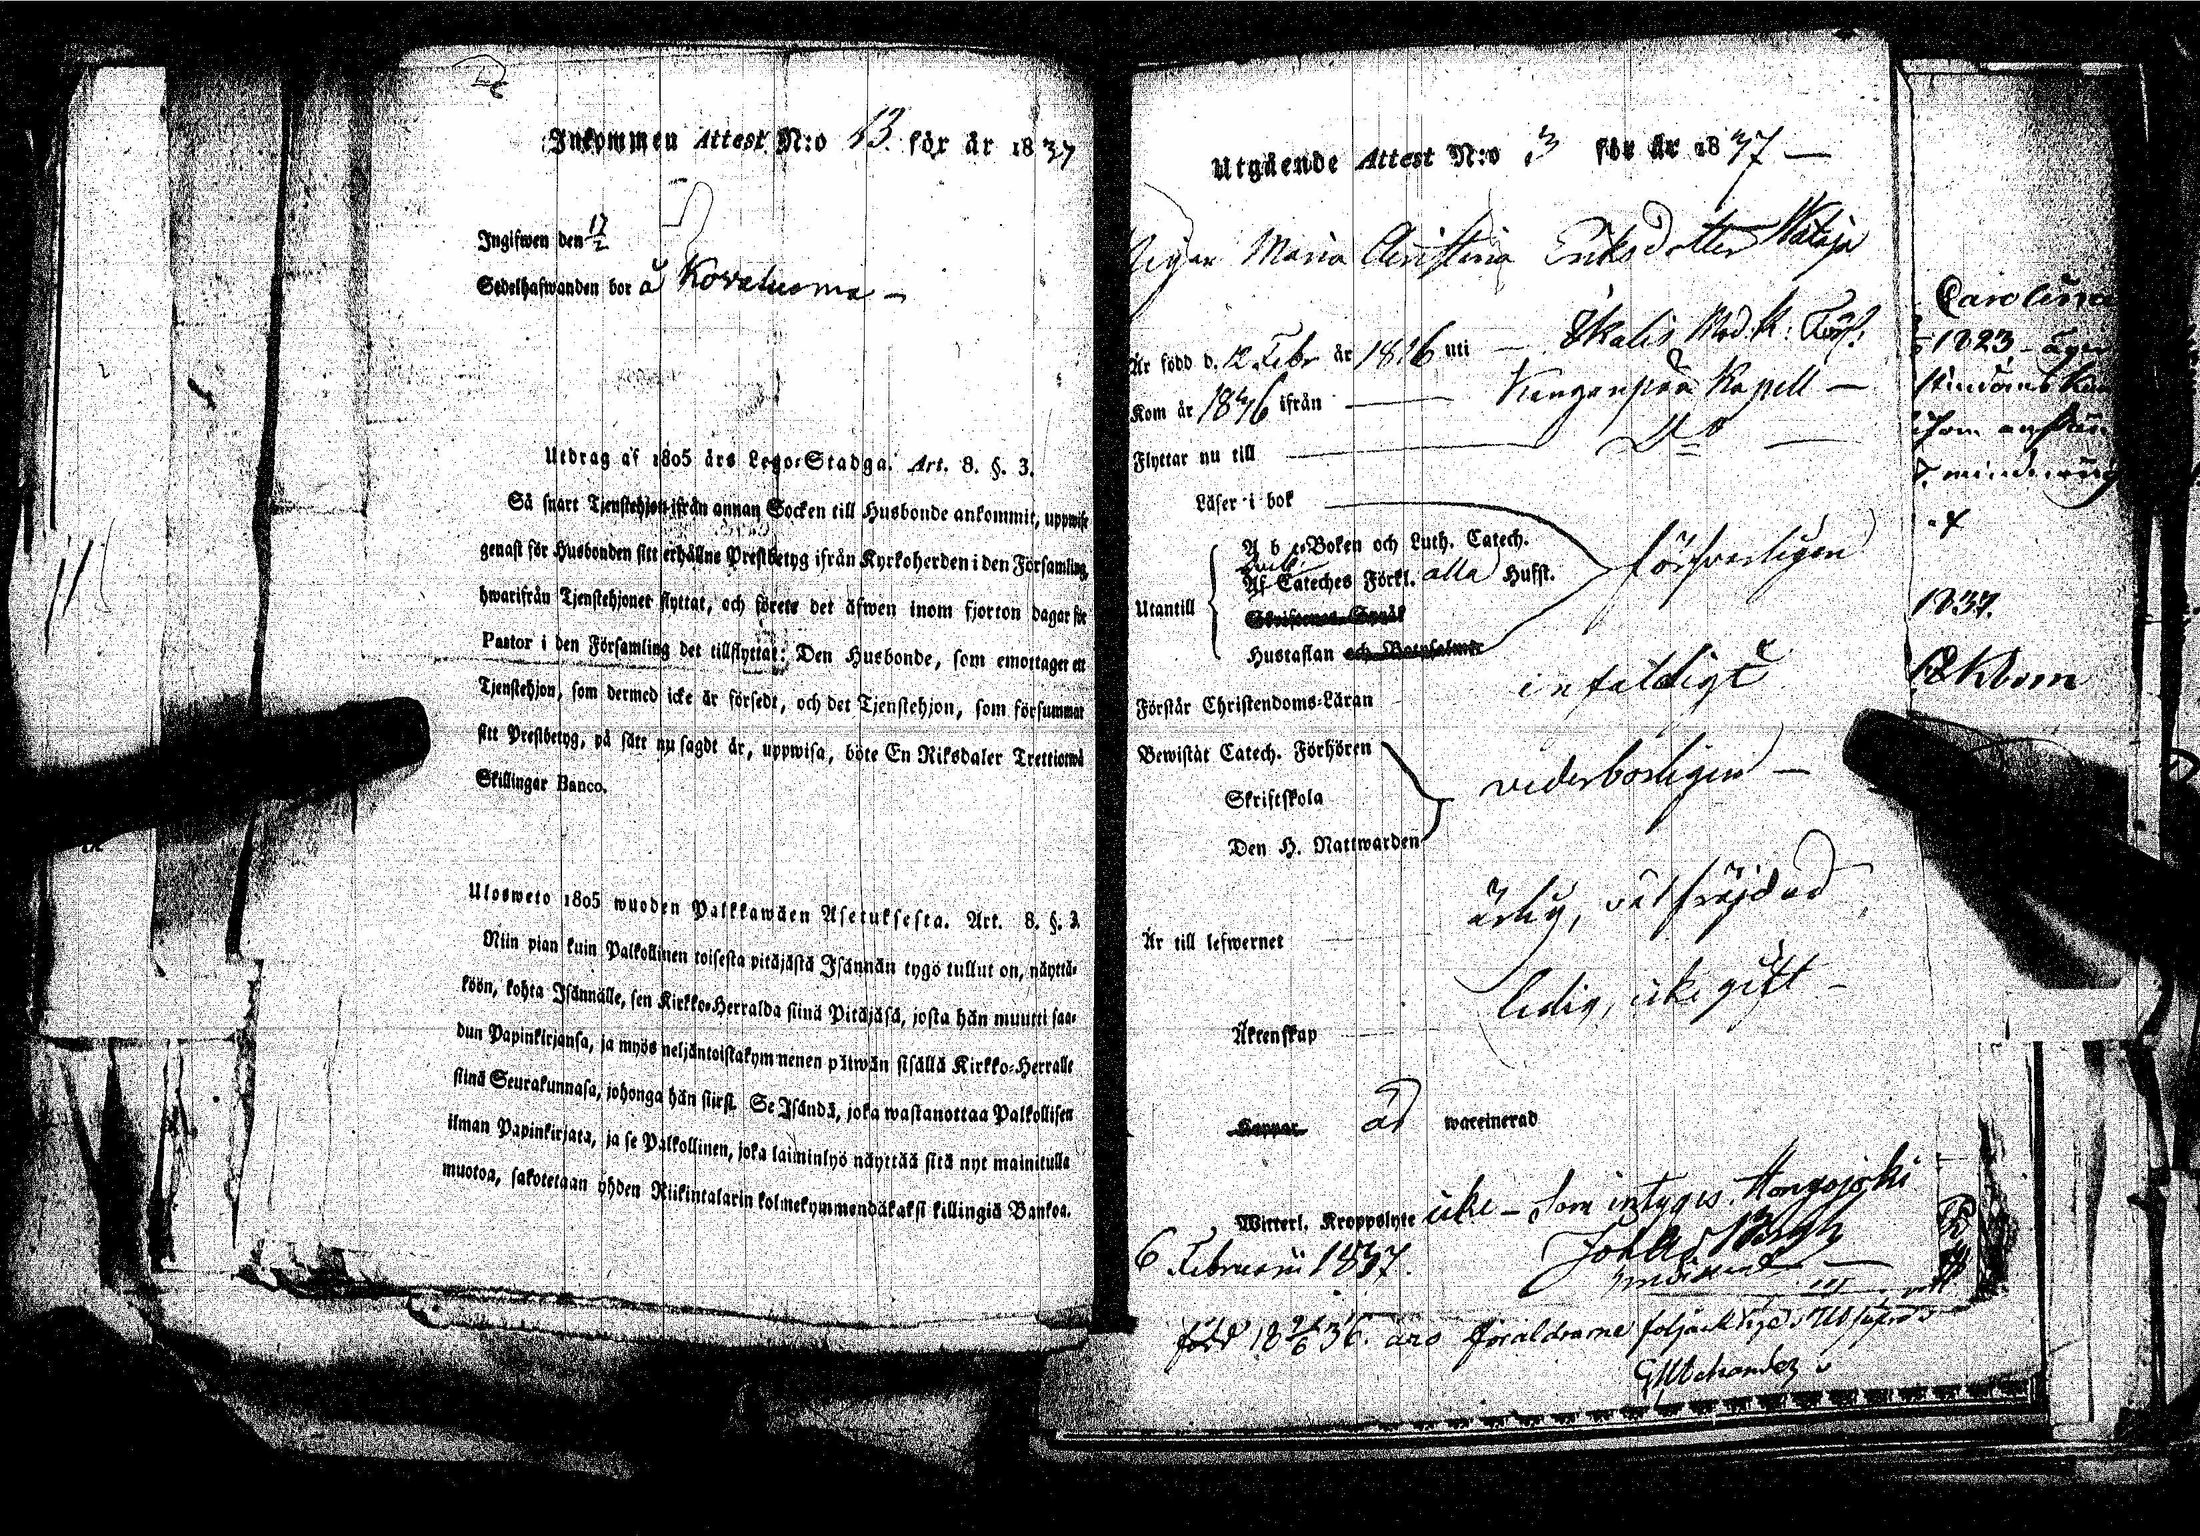 Inkommen Attest N:o 13. för år 1837
Ingifwen den 17/2
Sedelhafwanden bor å Kovaluoma –
Utdrag af 1805 års Lego-Stadga. Art. 8. §. 3.
Så snart Tjenstehjon ifrån annan Socken till Husbonde ankommit, uppwise
genast för Husbonden sitt erhållne Prestbetyg ifrån Kyrkoherden i den Församling,
hwarifrån Tjenstehjonet flyttat, och förete det äfwen inom fjorton dagar för
Pastor i den Församling det tillflyttat: Den Husbonde, som emottager ett
Tjenstehjon, som dermed icke är försedt, och det Tjenstehjon, som försummar
sitt Prestbetyg, på sätt nu sagdt är, uppwisa, böte En Riksdaler Trettiotwå
Skillingar Banco.
Ulosweto 1805 wuoden Palkkawäen Asetuksesta. Art. 8. §. 3
Niin pian kuin Palkollinen toisesta pitäjästä Isännän tygö tullut on, näyttä-
köön, kohta Isännälle, sen Kirkko-Herralda siinä Pitäjäsä, josta hän muutti saa-
dun Papinkirjansa, ja myös neljäntoistakymmenen päiwän sisällä Kirkko-Herralle
siinä Seurakunnasa, johonga hän siirsi. Se Isändä, joka wastanottaa Palkollisen
ilman Papinkirjata, ja se Palkollinen, joka laiminlyö näyttää sitä nyt mainitulla
muotoa, sakotetaan yhden Riikintalarin kolmekymmendäkaksi killingiä Bankoa.
Utgående Attest N:o 3 för år 1837 –
Pigan Maria Christina Eriksdotter Wataja
Är född d. 12 Febr år 1816 uti – Ikalis Mod. K. Förs.
Kom år ifrån Kangonpää Kapell –
Flyttar nu till Do
Läser i bok
A b c-Boken och Luth. Catech. försvarligen
Utantill Af Cateches Förkl. alla Husst.
Skriftenes Språk
Hustaflan och Botpsalmer
Förstår Christendoms-Läran infaldigt
Bewistat Catech. Förhören
Skriftskola vederbörligen –
Den H. Nattwarden
Är till lefwernet ärlig, välfrejdad
Äktenskap ledig, icke gift –
Koppor äd waccinerad
Witterl. Kroppslyte icke – Som intygas. Hongojoki
6 Februarii 1837.
född äro föräldrarne
Carolina
1823
1837.
Ekbom